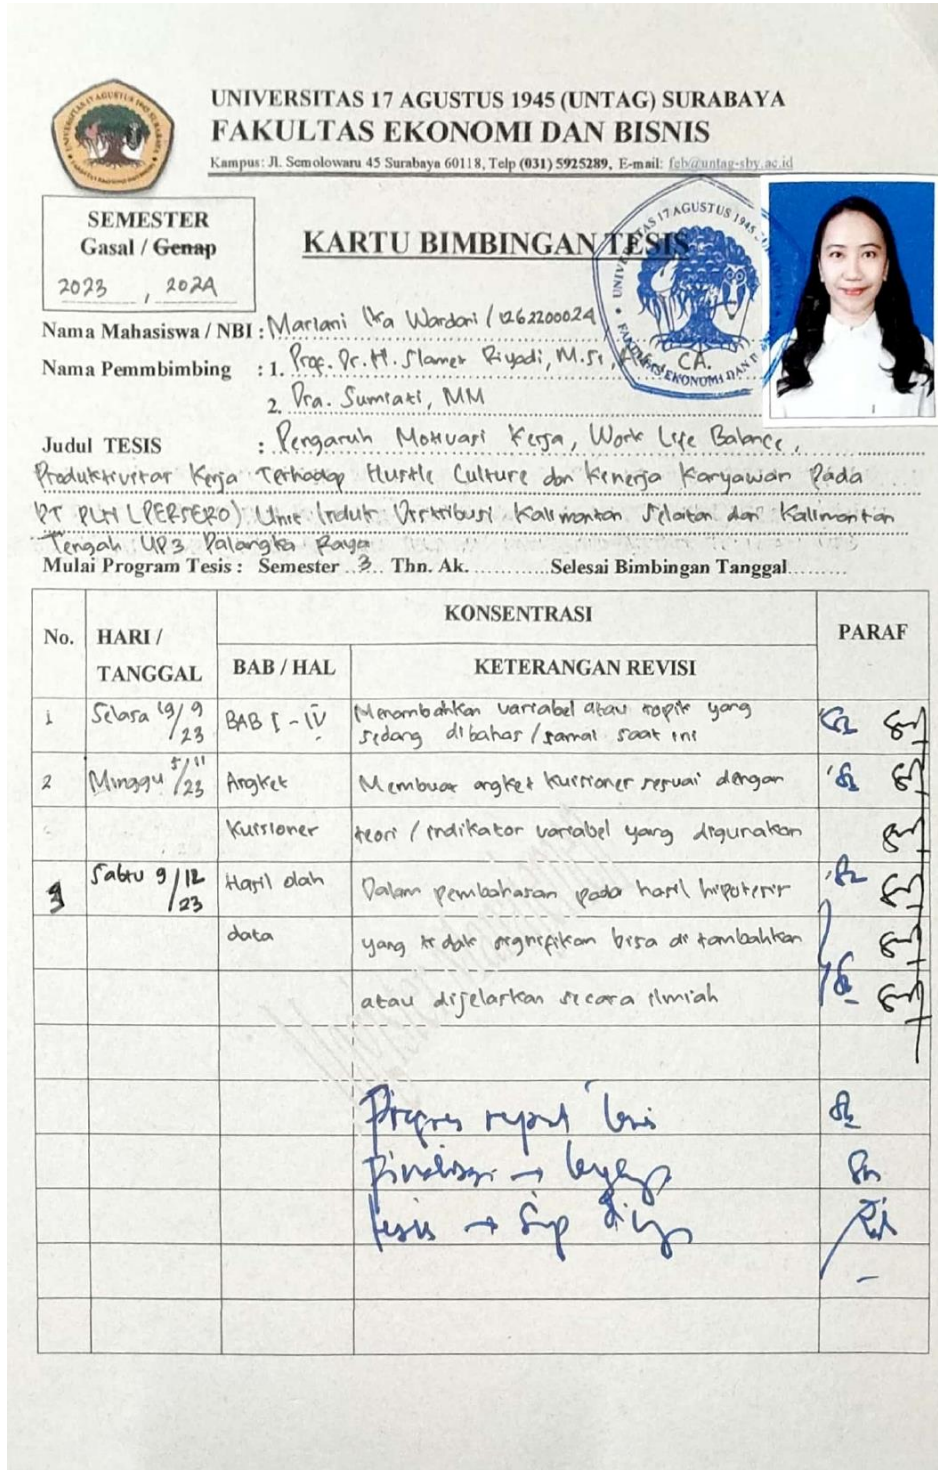 UNIVERSITAS 17 AGUSTUS 1945 (UNTAG) SURABAYA
FAKULTAS EKONOMI DAN BISNIS
Kampus: Jl. Semolowaru 45 Surabaya 60118, Telp (031) 5925289, E-mail: feb@untag-sby.ac.id
SEMESTER
Gasal / Genap
2023 , 2024
KARTU BIMBINGAN TESIS
Nama Mahasiswa / NBI : Mariani Ika Wardani / 1262200024
Nama Pemmbimbing : 1. Prof. Dr. H. Slamet Riyadi, M.Si, CA.
2. Dra. Sumiati, MM
Judul TESIS : Pengaruh Motivasi Kerja, Work Life Balance,
Produktivitas Kerja Terhadap Hustle Culture dan Kinerja Karyawan Pada
PT PLN (PERSERO) Unit Induk Distribusi Kalimantan Selatan dan Kalimantan
Tengah UP3 Palangka Raya
Mulai Program Tesis : Semester 3 Thn. Ak. Selesai Bimbingan Tanggal
No. HARI / TANGGAL KONSENTRASI PARAF
BAB / HAL KETERANGAN REVISI
1 Selasa 19/9/23 BAB I - IV Menambahkan variabel atau topik yang
sedang dibahas / ramai saat ini
2 Minggu 5/11/23 Angket Membuat angket kuisioner sesuai dengan
Kuisioner teori / indikator variabel yang digunakan
3 Sabtu 9/12/23 Hasil olah Dalam pembahasan pada hasil hipotesis
data yang tidak signifikan bisa di tambahkan
atau dijelaskan secara ilmiah
Progres report
tesis →